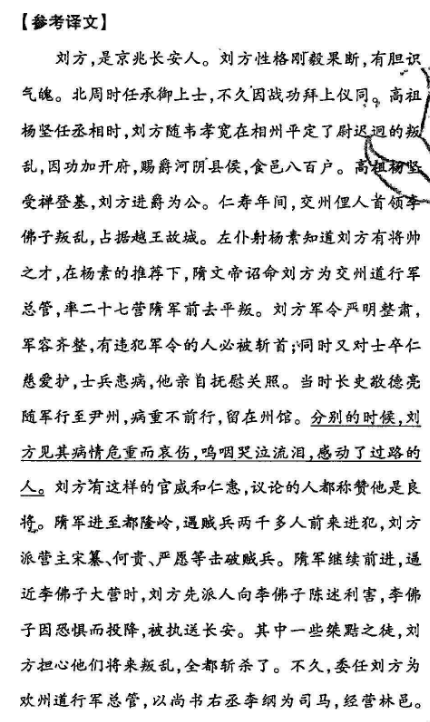 【参考译文】
刘方,是京兆长安人。刘方性格刚毅果断,有胆识
气魄。北周时任承御上士,不久因战功拜上仪同。高祖
杨坚任丞相时,刘方随韦孝宽在相州平定了尉迟迥的叛
乱,因功加开府,赐爵河阴县侯,食邑八百户。高祖杨坚
受禅登基,刘方进爵为公。仁寿年间,交州俚人首领李
佛子叛乱,占据越王故城。左仆射杨素知道刘方有将帅
之才,在杨素的推荐下,隋文帝诏命刘方为交州道行军
总管,率二十七营隋军前去平叛。刘方军令严明整肃,
军容齐整,有违犯军令的人必被斩首;同时又对士卒仁
慈爱护,士兵患病,他亲自抚慰关照。当时长史敬德亮
随军行至尹州,病重不前行,留在州馆。分别的时候,刘
方见其病情危重而哀伤,呜咽哭泣流泪,感动了过路的
人。刘方有这样的官威和仁惠,议论的人都称赞他是良
将。隋军进至都隆岭,遇贼兵两千多人前来进犯,刘方
派营主宋纂、何贵、严愿等击破贼兵。隋军继续前进,逼
近李佛子大营时,刘方先派人向李佛子陈述利害,李佛
子因恐惧而投降,被执送长安。其中一些桀黠之徒,刘
方担心他们将来叛乱,全都斩杀了。不久,委任刘方为
欢州道行军总管,以尚书右丞李纲为司马,经营林邑。